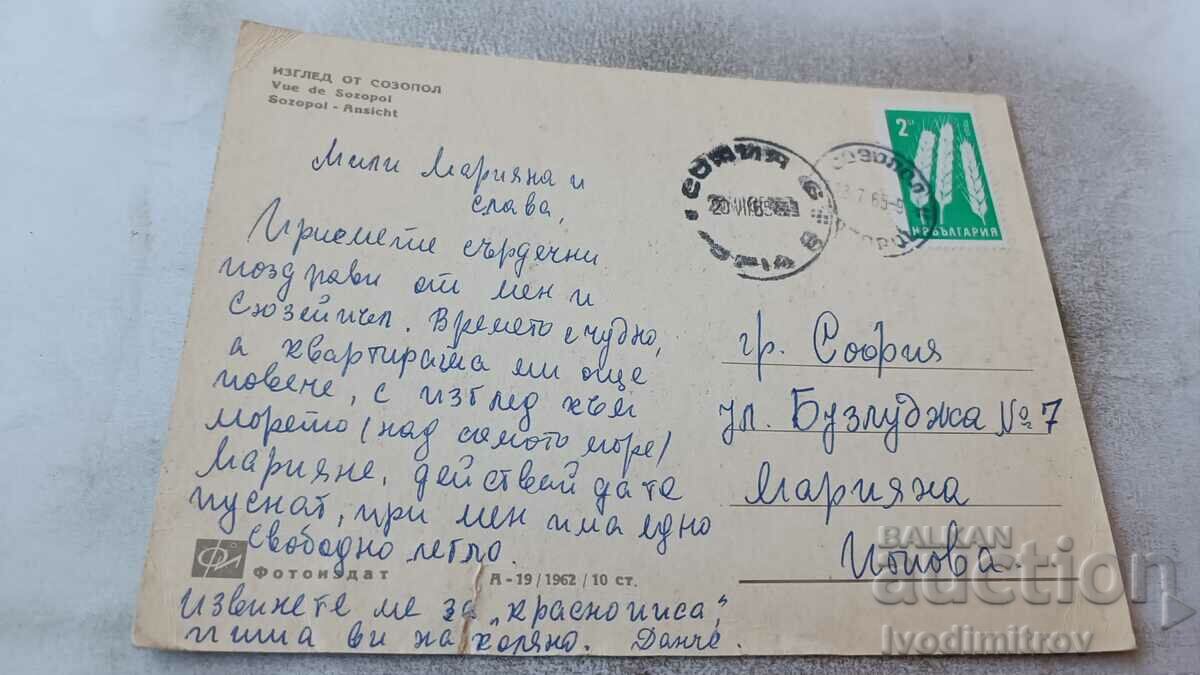 ИЗГЛЕД ОТ СОЗОПОЛ
Vue de Sozopol
Sozopol - Ansicht
Мили Марияна и
Слава,
Приемете сърдечни
поздрави от мен и
Времето е чудно,
а квартирата ми още
повече, с изглед към
морето (над самото море)
Марияне, действей да те
пуснат, при мен има едно
свободно легло.
Фотоиздат
А-19/1962/10 ст.
Извинете ме за "краснописа",
пиша ви на коляно. Данче.
2
НР БЪЛГАРИЯ
гр. София
ул. Бузлуджа № 7
Марияна
BALKAN
auction
Ivodimitrov